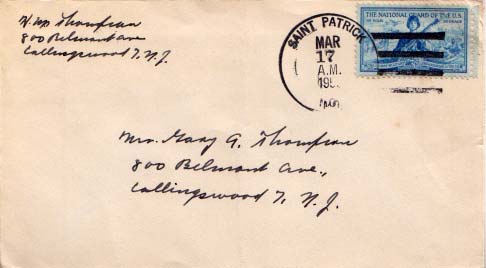 Wm Thompson
800 Belmont Ave
Collingswood 7, N.J.
SAINT PATRICK
MAR
17
A.M.
195
MO.
THE NATIONAL GUARD OF THE U.S.
Mrs. Mary A. Thompson
800 Belmont Ave.,
Collingswood 7, N.J.